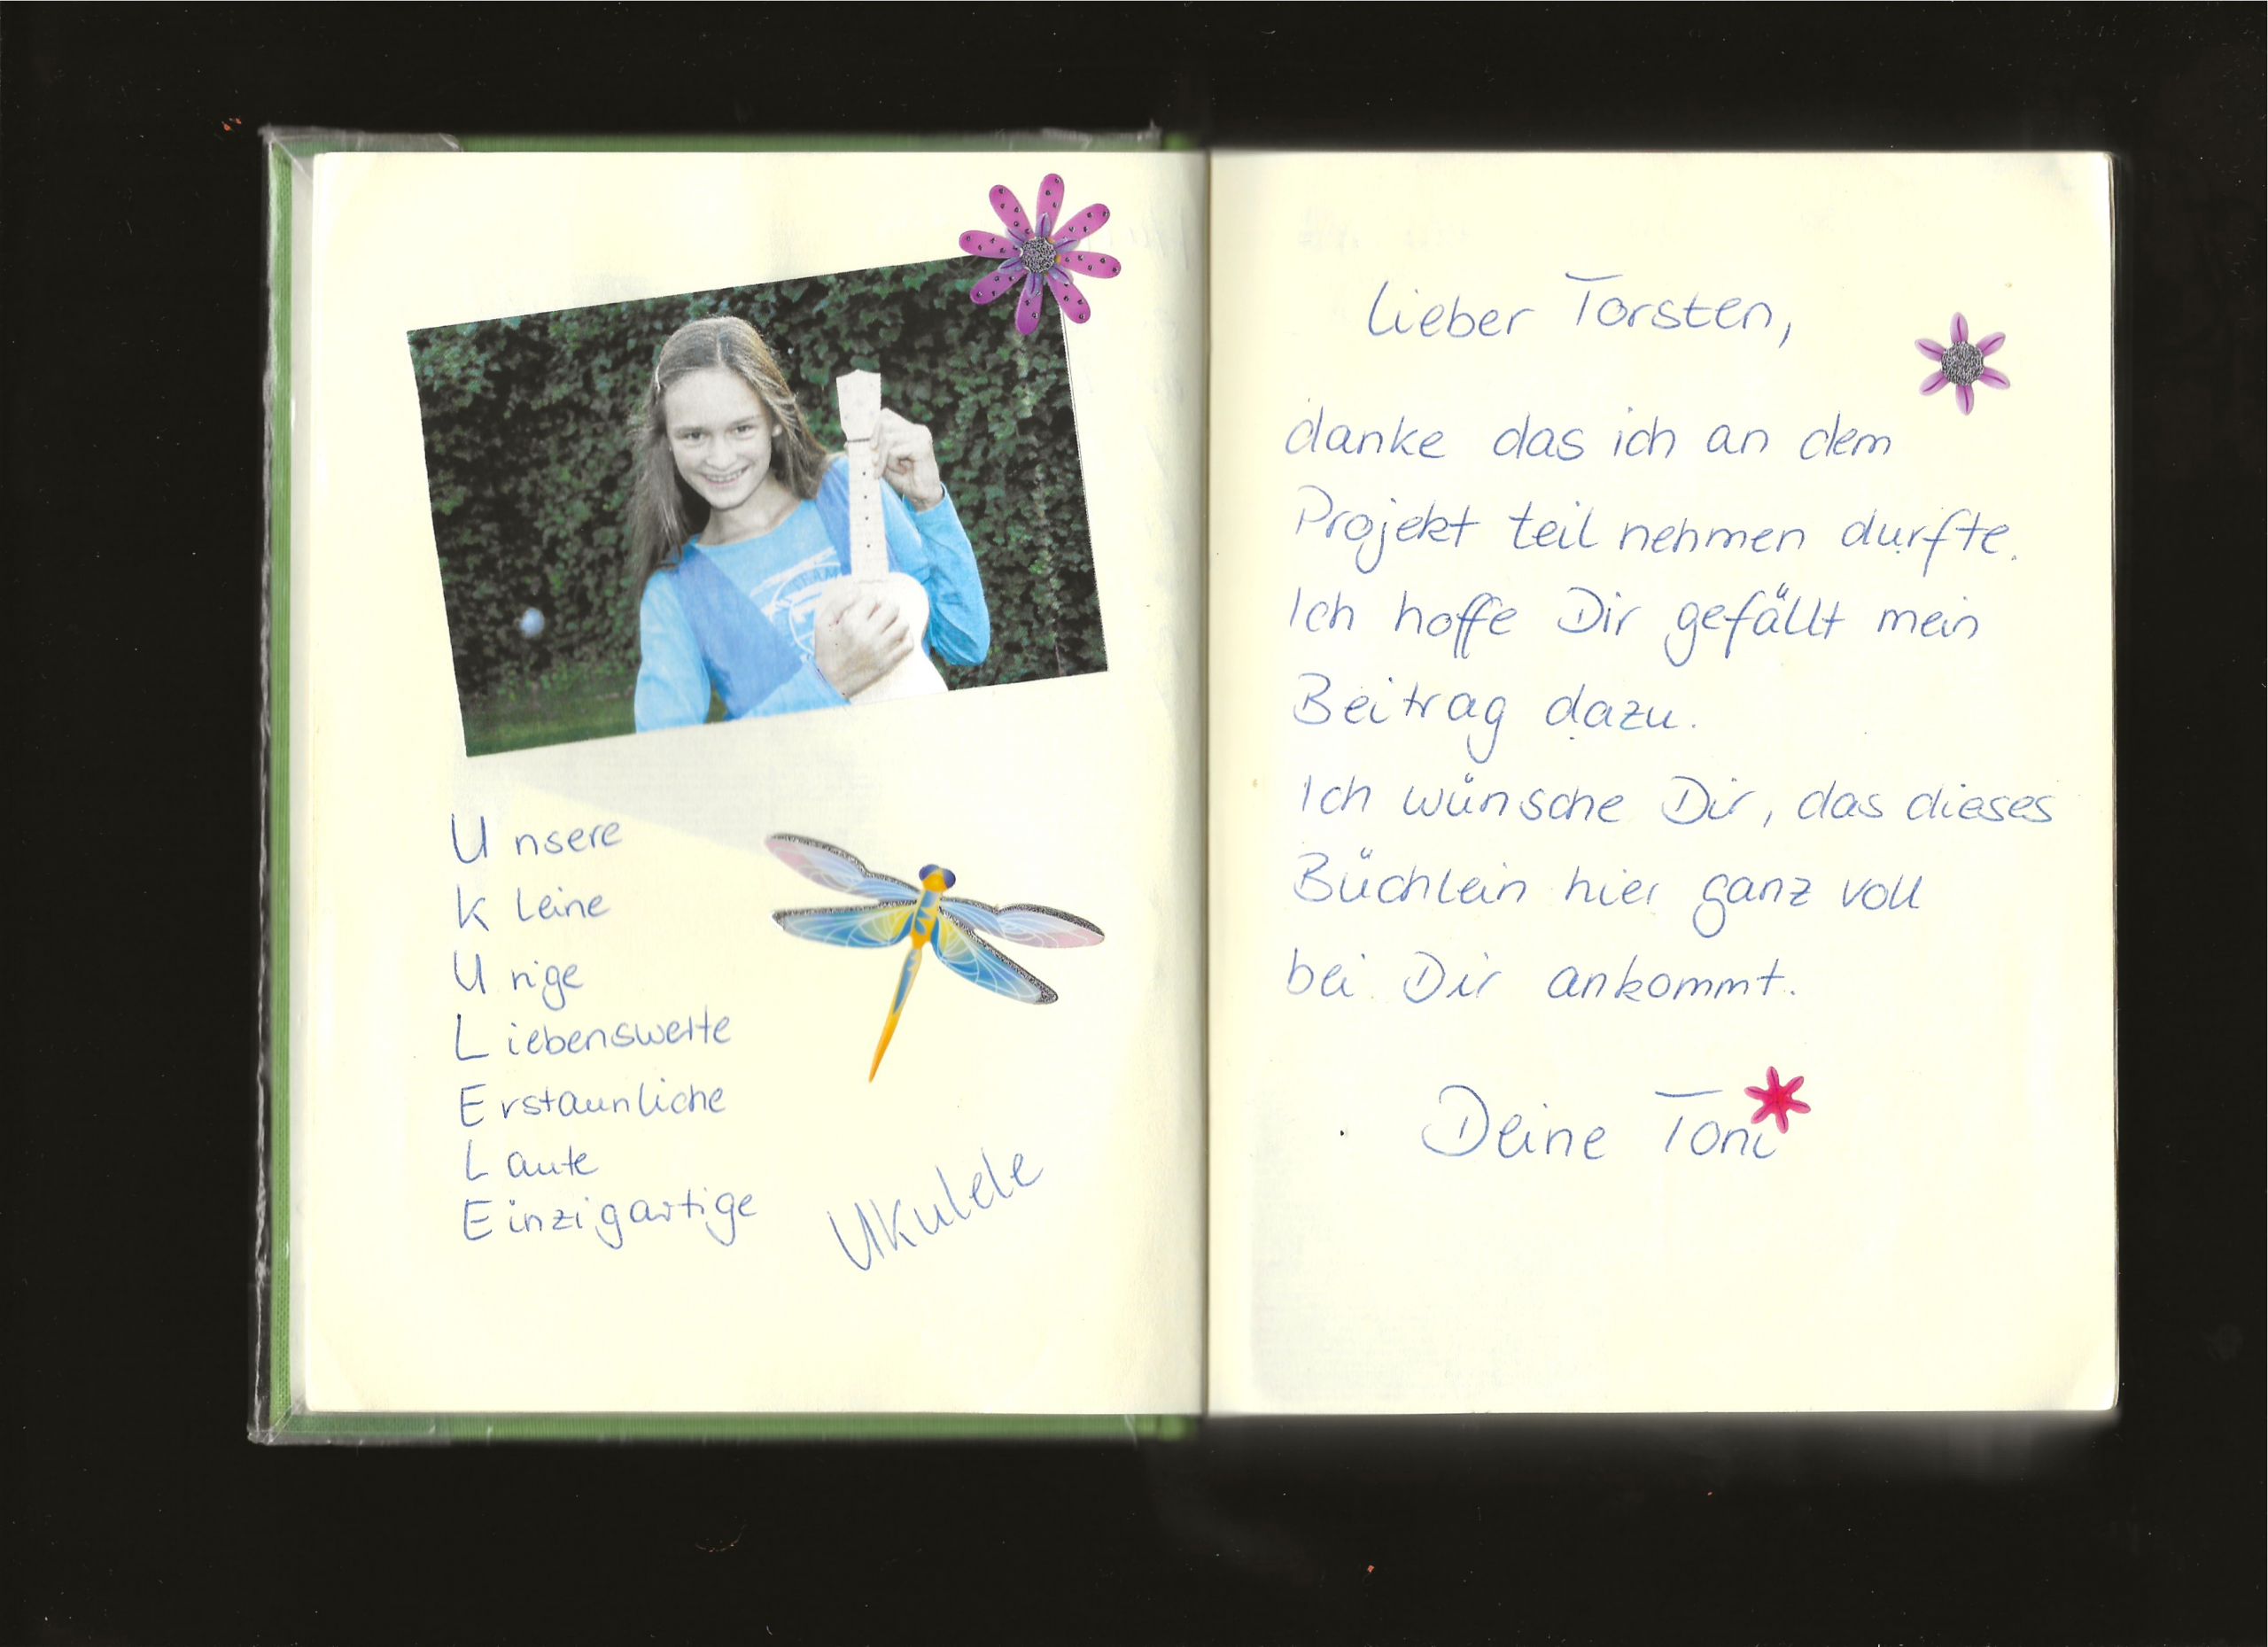 Unsere
Kleine
Urige
Liebenswerte
Erstaunliche
Laute
Einzigartige
Ukulele
Lieber Torsten,
danke das ich an dem
Projekt teil nehmen durfte.
Ich hoffe Dir gefällt mein
Beitrag dazu.
Ich wünsche Dir, das dieses
Büchlein hier ganz voll
bei Dir ankommt.
Deine Toni